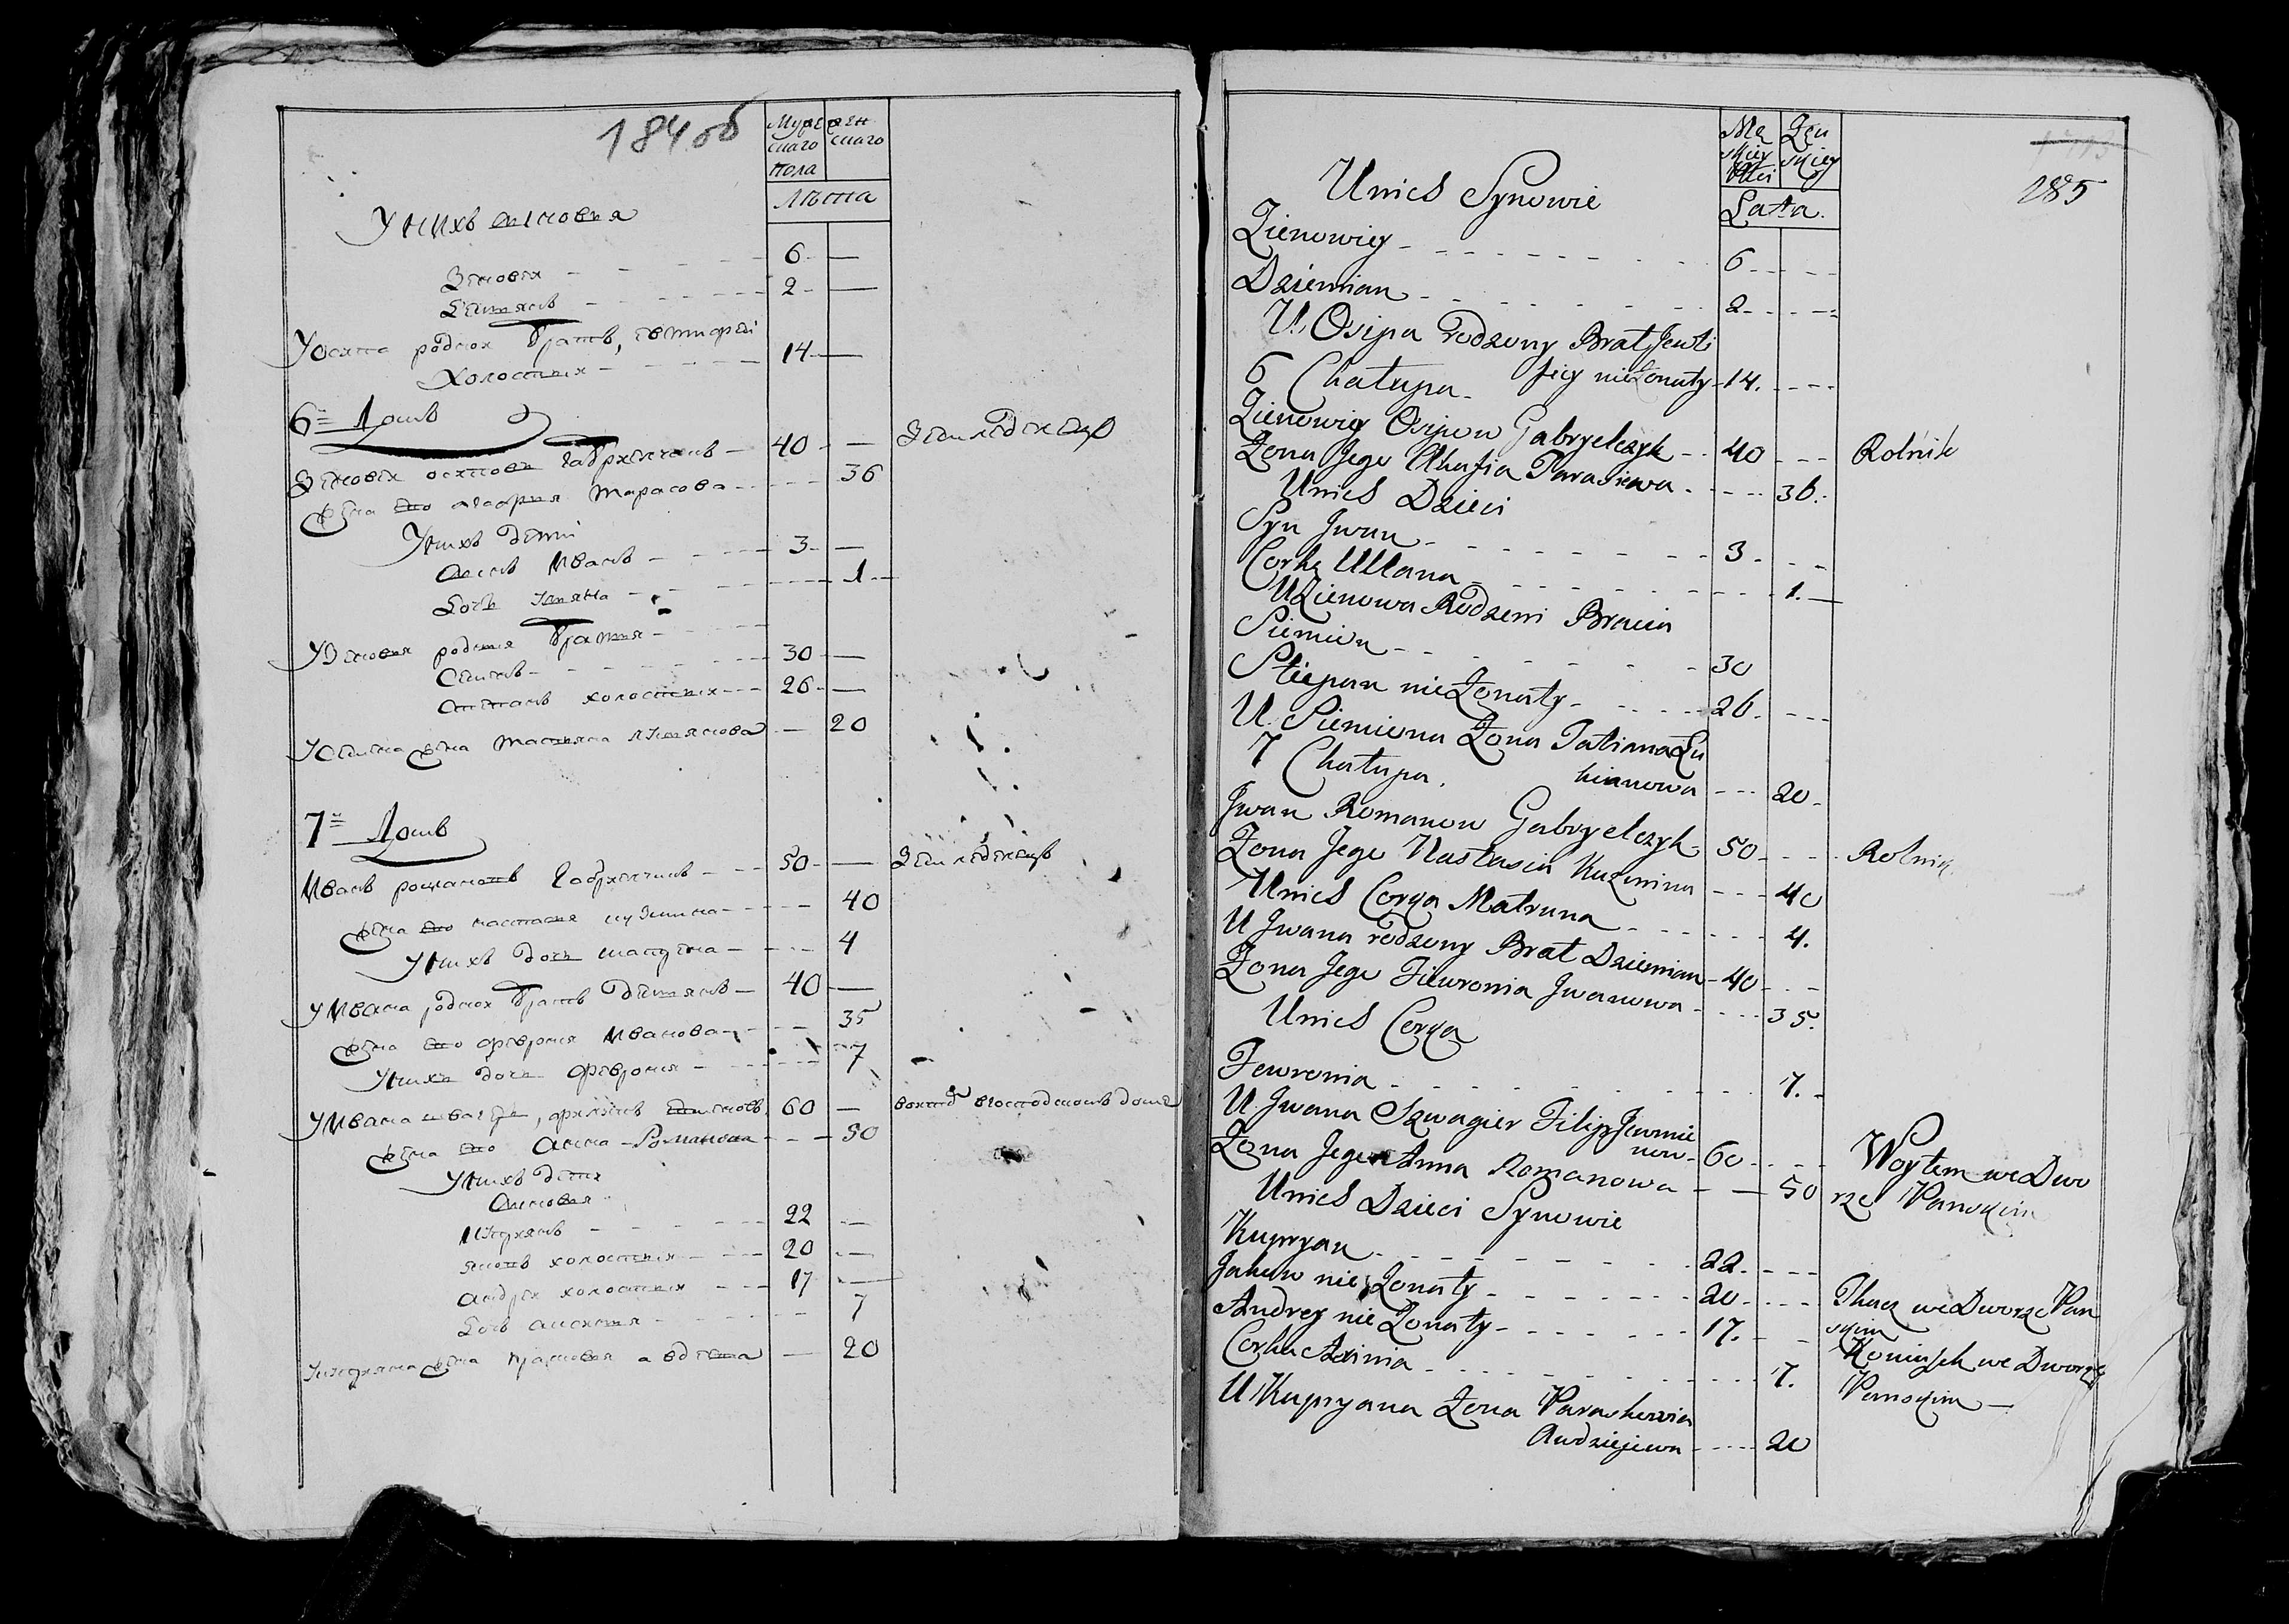 184 об
Мужескаго пола
женскаго
Лѣта
У нихъ сыновья
Зѣновей 6 —
Демянъ 2 —
У Осипа родной братъ, Евтифей
холостый 14 —
6й Домъ
Зѣновей Осиповъ Габріелчикъ 40 — Земледѣлецъ
жена его Агафия Тарасова 36
У нихъ дети
Сынъ Иванъ 3 —
Дочь Уляна 1
У Зеновья родныя братья
Семенъ 30 —
Степанъ холостый 26 —
У Семена жена Татяна Лукянова — 20
7й Домъ
Иванъ Романовъ Габріелчикъ 50 — Земледѣлецъ
жена его Настасья Кузмина 40
У нихъ дочь Матруна 4
У Ивана родной братъ Демянъ 40 —
жена его Феврония Иванова 35
У нихъ дочь Феврония 7
У Ивана швагеръ, Филипъ 60 — войтъ в господскомъ доме
жена его Анна Романова 50
У нихъ дети
Сыновья
Купріянъ 22 —
Яковъ холостый 20 —
Андрей холостый 17 —
Дочь Аксинья 7
У Купріяна жена Прасковья Авдеева — 20
285
Męskiey Płci
Żeńskiey
Lata.
U nich Synowie
Zienowiey 6
Dziemian 2
U Osipa rodzony Brat Jewti
fiey nieżonaty 14.
6 Chałupa
Zienowiey Osipow Gabryelczyk 40 Rolnik
Żona Jego Ahafia Tarasiewa 36.
U nich Dzieci
Syn Jwan 3
Corka Ullana 1.
U Zienowa Rodzeni Bracia
Siemion 30
Stiepan nie Żonaty 26.
U Siemiona Żona Tatiana Łu
kianowa 20
7 Chałupa.
Jwan Romanow Gabryelczyk 50 Rolnik
Żona Jego Nastasia Kuzmina 40
U nich Corqa Matruna 4.
U Jwana rodzony Brat Dziemian 40
Żona Jego Fiewronia Jwanowa 35.
U nich Corqa
Fewronia 7.
U Jwana Szwagier Filip Jewmie
now 60 Woytem we Dwo
Żona Jego Anna Romanowa 50 rze Panskim
U nich Dzieci Synowie
Kupryan 22.
Jakow nie Żonaty 20 Tkacz we Dworze Pan
skim
Andrey nie Żonaty 17. Koniuch we Dworze
Panskim
Corka Axinia 7.
U Kupryana Żona Paraskewia
Awdziejewa 20